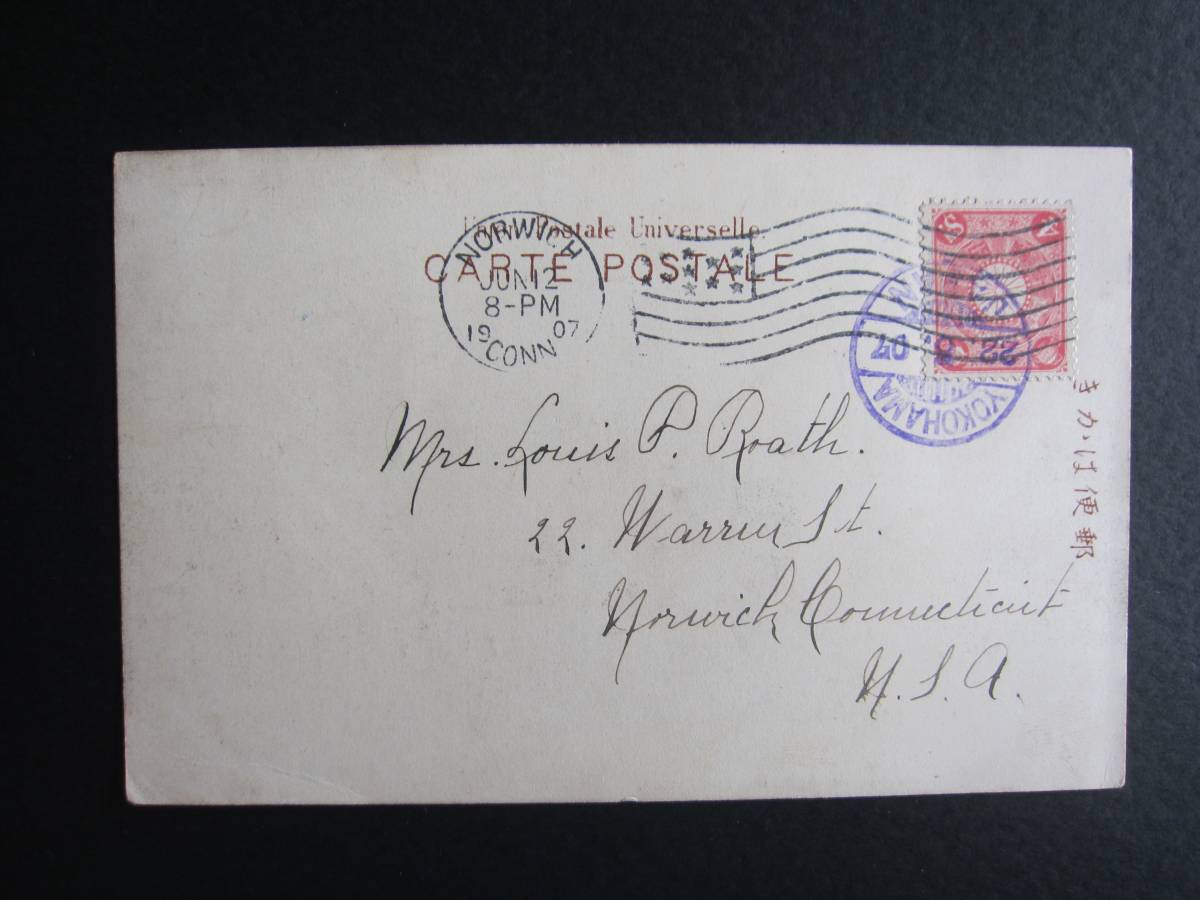 Union Postale Universelle.
CARTE POSTALE
NORWICH
JUN 12
8-PM
19 07
CONN
YOKOHAMA
22. 07
Mrs. Louis P. Roath.
22. Warren St.
Norwich Connecticut
U.S.A.
郵便はかき